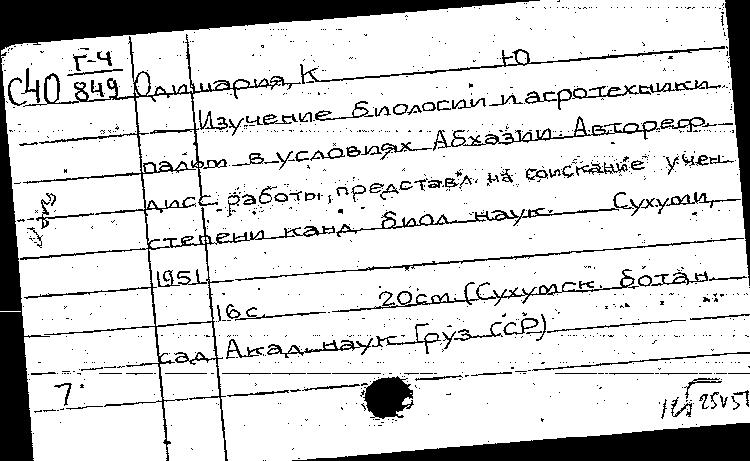 С40 Г-4
849 Одишария, К Ю
Изучение биологии и агротехники
пальм в условиях Абхазии. Автореф.
дисс. работы, представл. на соискание учен
степени канд. биол. наук. Сухуми,
1951.
16 с. 20 cm. (Сухумск. ботан
сад Акад. наук Груз ССР)
7.
25 V 51